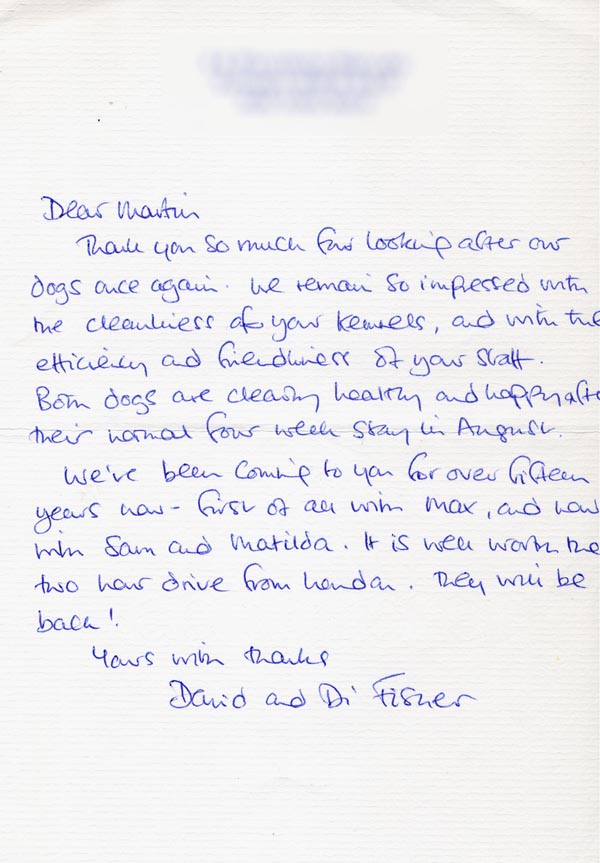 Dear Martin
Thank you so much for looking after our
dogs once again. We remain so impressed with
the cleanliness of your kennels, and with the
efficiency and friendliness of your staff.
Both dogs are clearly healthy and happy after
their normal four week stay in August.
We've been coming to you for over fifteen
years now - first of all with Max, and now
with Sam and Matilda. It is well worth the
two hour drive from London. They will be
back!
Yours with thanks
David and Di Fisher